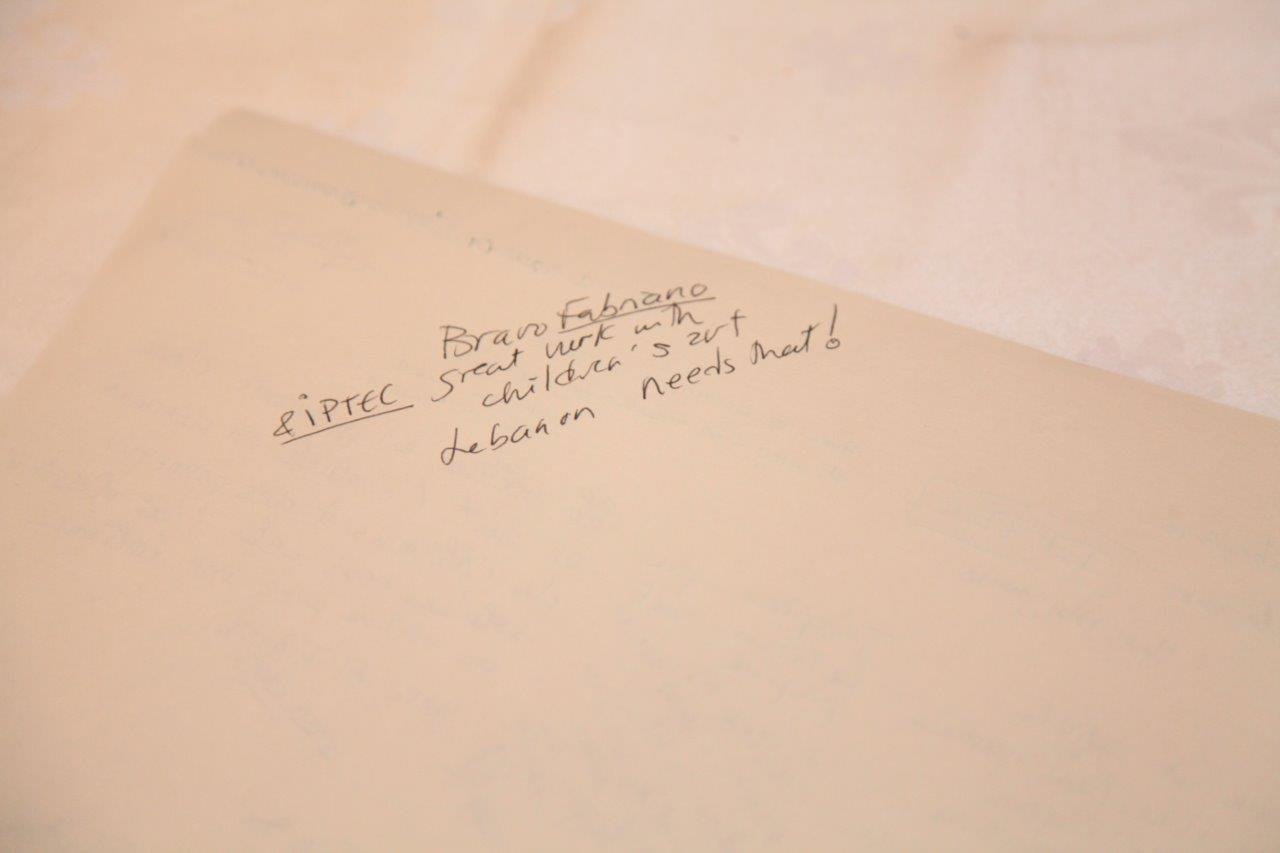 Bravo Fabriano
& iPTEC great work with
children's art
Lebanon needs that!